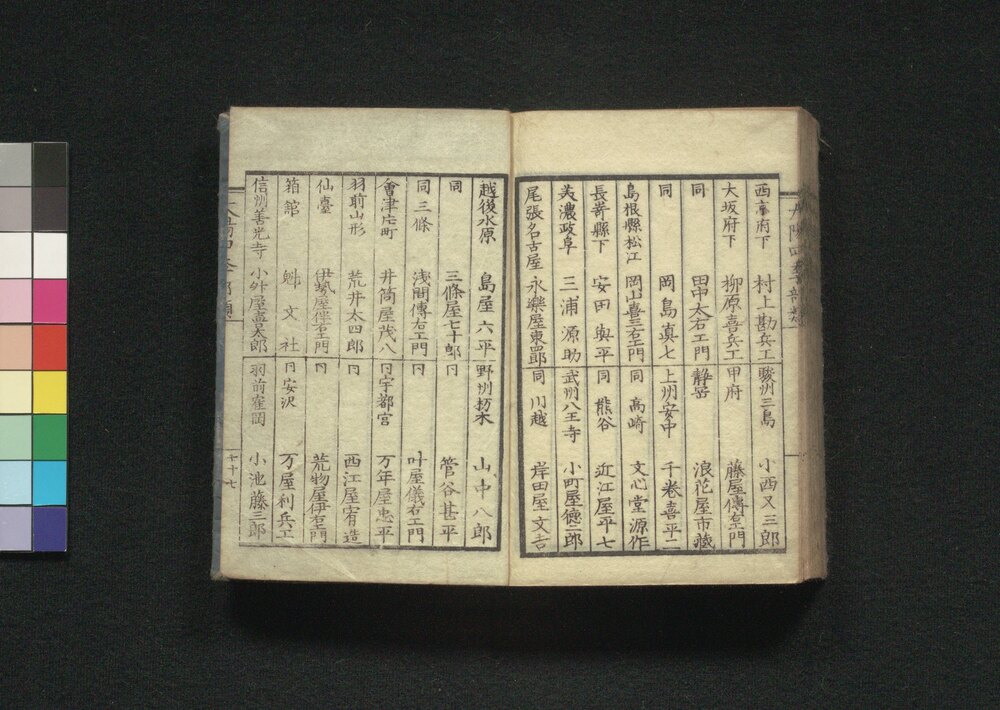 西京府下 村上勘兵エ
大坂府下 柳原喜兵エ
同 田中太右エ門
同 岡島真七
島根縣松江 岡山喜三右エ門
長嵜縣下 安田與平
美濃政阜 三浦源助
尾張名古屋 永樂屋東四郎
駿州三島 小西又三郎
甲府 藤屋傳右エ門
静岳 浪花屋市藏
上州安中 千巻喜平二
同 高崎 文心堂源作
同 熊谷 近江屋平七
武州八王寺 小町屋徳三郎
同 川越 岸田屋文吉
越後水原 島屋六平
同 三條屋七十郎
同三條 浅間傳右エ門
會津庄町 井筒屋茂八
羽前山形 荒井太四郎
仙臺 伊勢屋伴右エ門
箱館 魁文社
信州善光寺 小舛屋喜太郎
野州栃木 山中八郎
同 管谷甚平
同 叶屋儀右エ門
同宇都宮 万年屋忠平
同 西江屋宥造
同 荒物屋伊右エ門
同安沢 万屋利兵エ
羽前霍岡 小池藤三郎
五十七